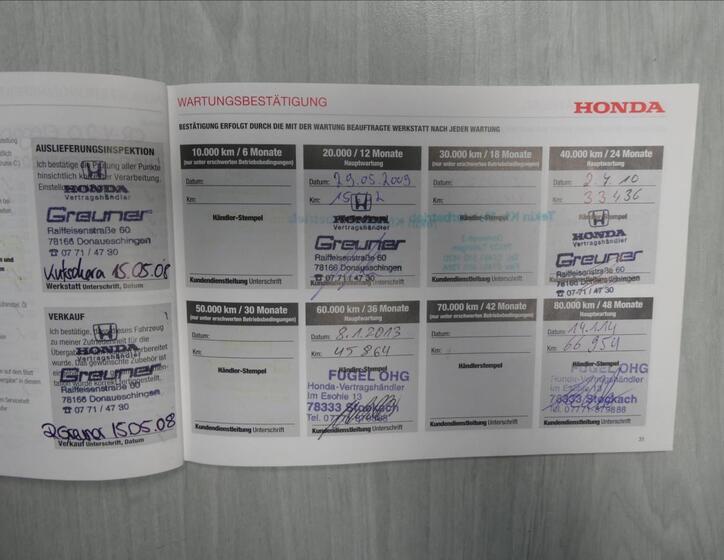 AUSLIEFERUNGSINSPEKTION
Ich bestätige die Prüfung aller Punkte
hinsichtlich korrekter Verarbeitung,
HONDA
Vertragshändler
Greuner
Raiffeisenstraße 60
78166 Donaueschingen
☎ 07 71 / 47 30
Kutschera 15.05.08
Werkstatt Unterschrift, Datum
VERKAUF
Ich bestätige, dieses Fahrzeug
zu meiner Zufriedenheit für die
HONDA
Vertragshändler
Greuner
Raiffeisenstraße 60
78166 Donaueschingen
☎ 07 71 / 47 30
Greuner 15.05.08
Verkauf Unterschrift, Datum
WARTUNGSBESTÄTIGUNG
HONDA
BESTÄTIGUNG ERFOLGT DURCH DIE MIT DER WARTUNG BEAUFTRAGTE WERKSTATT NACH JEDER WARTUNG
10.000 km / 6 Monate
(nur unter erschwerten Betriebsbedingungen)
Datum:
Km:
Händler-Stempel
Kundendienstleitung Unterschrift
20.000 / 12 Monate
Hauptwartung
Datum: 29.05.2009
Km:
HONDA
Vertragshändler
Greuner
Raiffeisenstraße 60
78166 Donaueschingen
☎ 07 71 / 47 30
Kundendienstleitung Unterschrift
30.000 km / 18 Monate
(nur unter erschwerten Betriebsbedingungen)
Datum:
Km:
Händler-Stempel
Kundendienstleitung Unterschrift
40.000 km / 24 Monate
Hauptwartung
Datum: 2.4.10
Km: 33436
HONDA
Vertragshändler
Greuner
Raiffeisenstraße 60
78166 Donaueschingen
☎ 07 71 / 47 30
50.000 km / 30 Monate
(nur unter erschwerten Betriebsbedingungen)
Datum:
Km:
Händler-Stempel
Kundendienstleitung Unterschrift
60.000 km / 36 Monate
Hauptwartung
Datum: 8.1.2013
Km: 45864
Händler-Stempel
FÜGEL OHG
Honda-Vertragshändler
Im Eschle 13
78333 Stockach
Kundendienstleitung Unterschrift
70.000 km / 42 Monate
(nur unter erschwerten Betriebsbedingungen)
Datum:
Km:
Händler-Stempel
Kundendienstleitung Unterschrift
80.000 km / 48 Monate
Hauptwartung
Datum: 14.1.14
Km: 66954
Händler-Stempel
FÜGEL OHG
Honda-Vertragshändler
Im Eschle 13
78333 Stockach
Kundendienstleitung Unterschrift
31